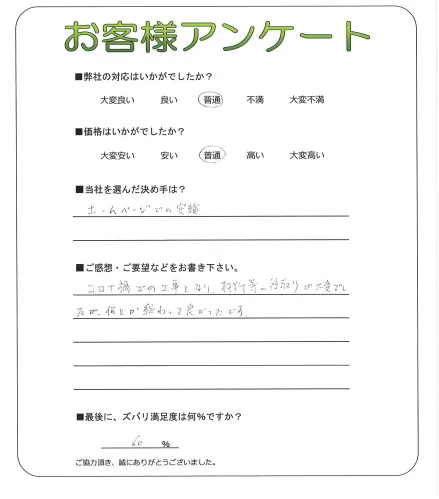 お客様アンケート
■弊社の対応はいかがでしたか？
大変良い 良い 普通 不満 大変不満
■価格はいかがでしたか？
大変安い 安い 普通 高い 大変高い
■当社を選んだ決め手は？
ホームページでの実績
■ご感想・ご要望などをお書き下さい。
コロナ禍での工事となり、材料等の段取りが大変でし
たが、何とか終わって良かったです。
■最後に、ズバリ満足度は何％ですか？
60 ％
ご協力頂き、誠にありがとうございました。